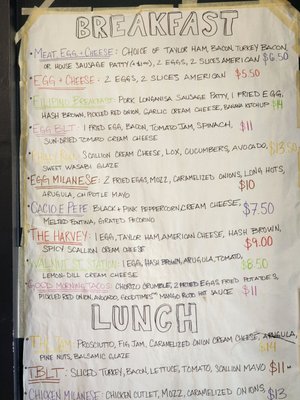 BREAKFAST
• MEAT, EGG + CHEESE: CHOICE OF TAYLOR HAM, BACON, TURKEY BACON,
OR HOUSE SAUSAGE PATTY, 2 EGGS, 2 SLICES AMERICAN $6.50
• EGG + CHEESE: 2 EGGS, 2 SLICES AMERICAN $5.50
FILIPINO BREAKFAST: PORK LONGANISA SAUSAGE PATTY, 1 FRIED EGG,
HASH BROWN, PICKLED RED ONION, GARLIC CREAM CHEESE, BANANA KETCHUP $14
• EGG BLT: 1 FRIED EGG, BACON, TOMATO JAM, SPINACH, $11
SUN-DRIED TOMATO CREAM CHEESE
SCALLION CREAM CHEESE, LOX, CUCUMBERS, AVOCADO, $13.50
SWEET WASABI GLAZE
• EGG MILANESE: 2 FRIED EGGS, MOZZ, CARAMELIZED ONIONS, LONG HOTS,
ARUGULA, CHIPOTLE MAYO $10
• CACIO E PEPE: BLACK + PINK PEPPERCORN CREAM CHEESE, $7.50
MELTED FONTINA, GRATED PECORINO
• THE HARVEY: 1 EGG, TAYLOR HAM, AMERICAN CHEESE, HASH BROWN,
SPICY SCALLION CREAM CHEESE $9.00
• WALNUT ST. STATION: 1 EGG, HASH BROWN, ARUGULA, TOMATO,
LEMON-DILL CREAM CHEESE $8.50
GOOD MORNING TACOS: CHORIZO CRUMBLE, 2 FRIED EGGS, FRIED POTATOES,
PICKLED RED ONION, AVOCADO, GOODTIMES MANGO BLOOD HOT SAUCE $11
LUNCH
FIG JAM: PROSCIUTTO, FIG JAM, CARAMELIZED ONION CREAM CHEESE, ARUGULA,
PINE NUTS, BALSAMIC GLAZE $14
• TBLT: SLICED TURKEY, BACON, LETTUCE, TOMATO, SCALLION MAYO $11
• CHICKEN MILANESE: CHICKEN CUTLET, MOZZ, CARAMELIZED ONIONS, $13